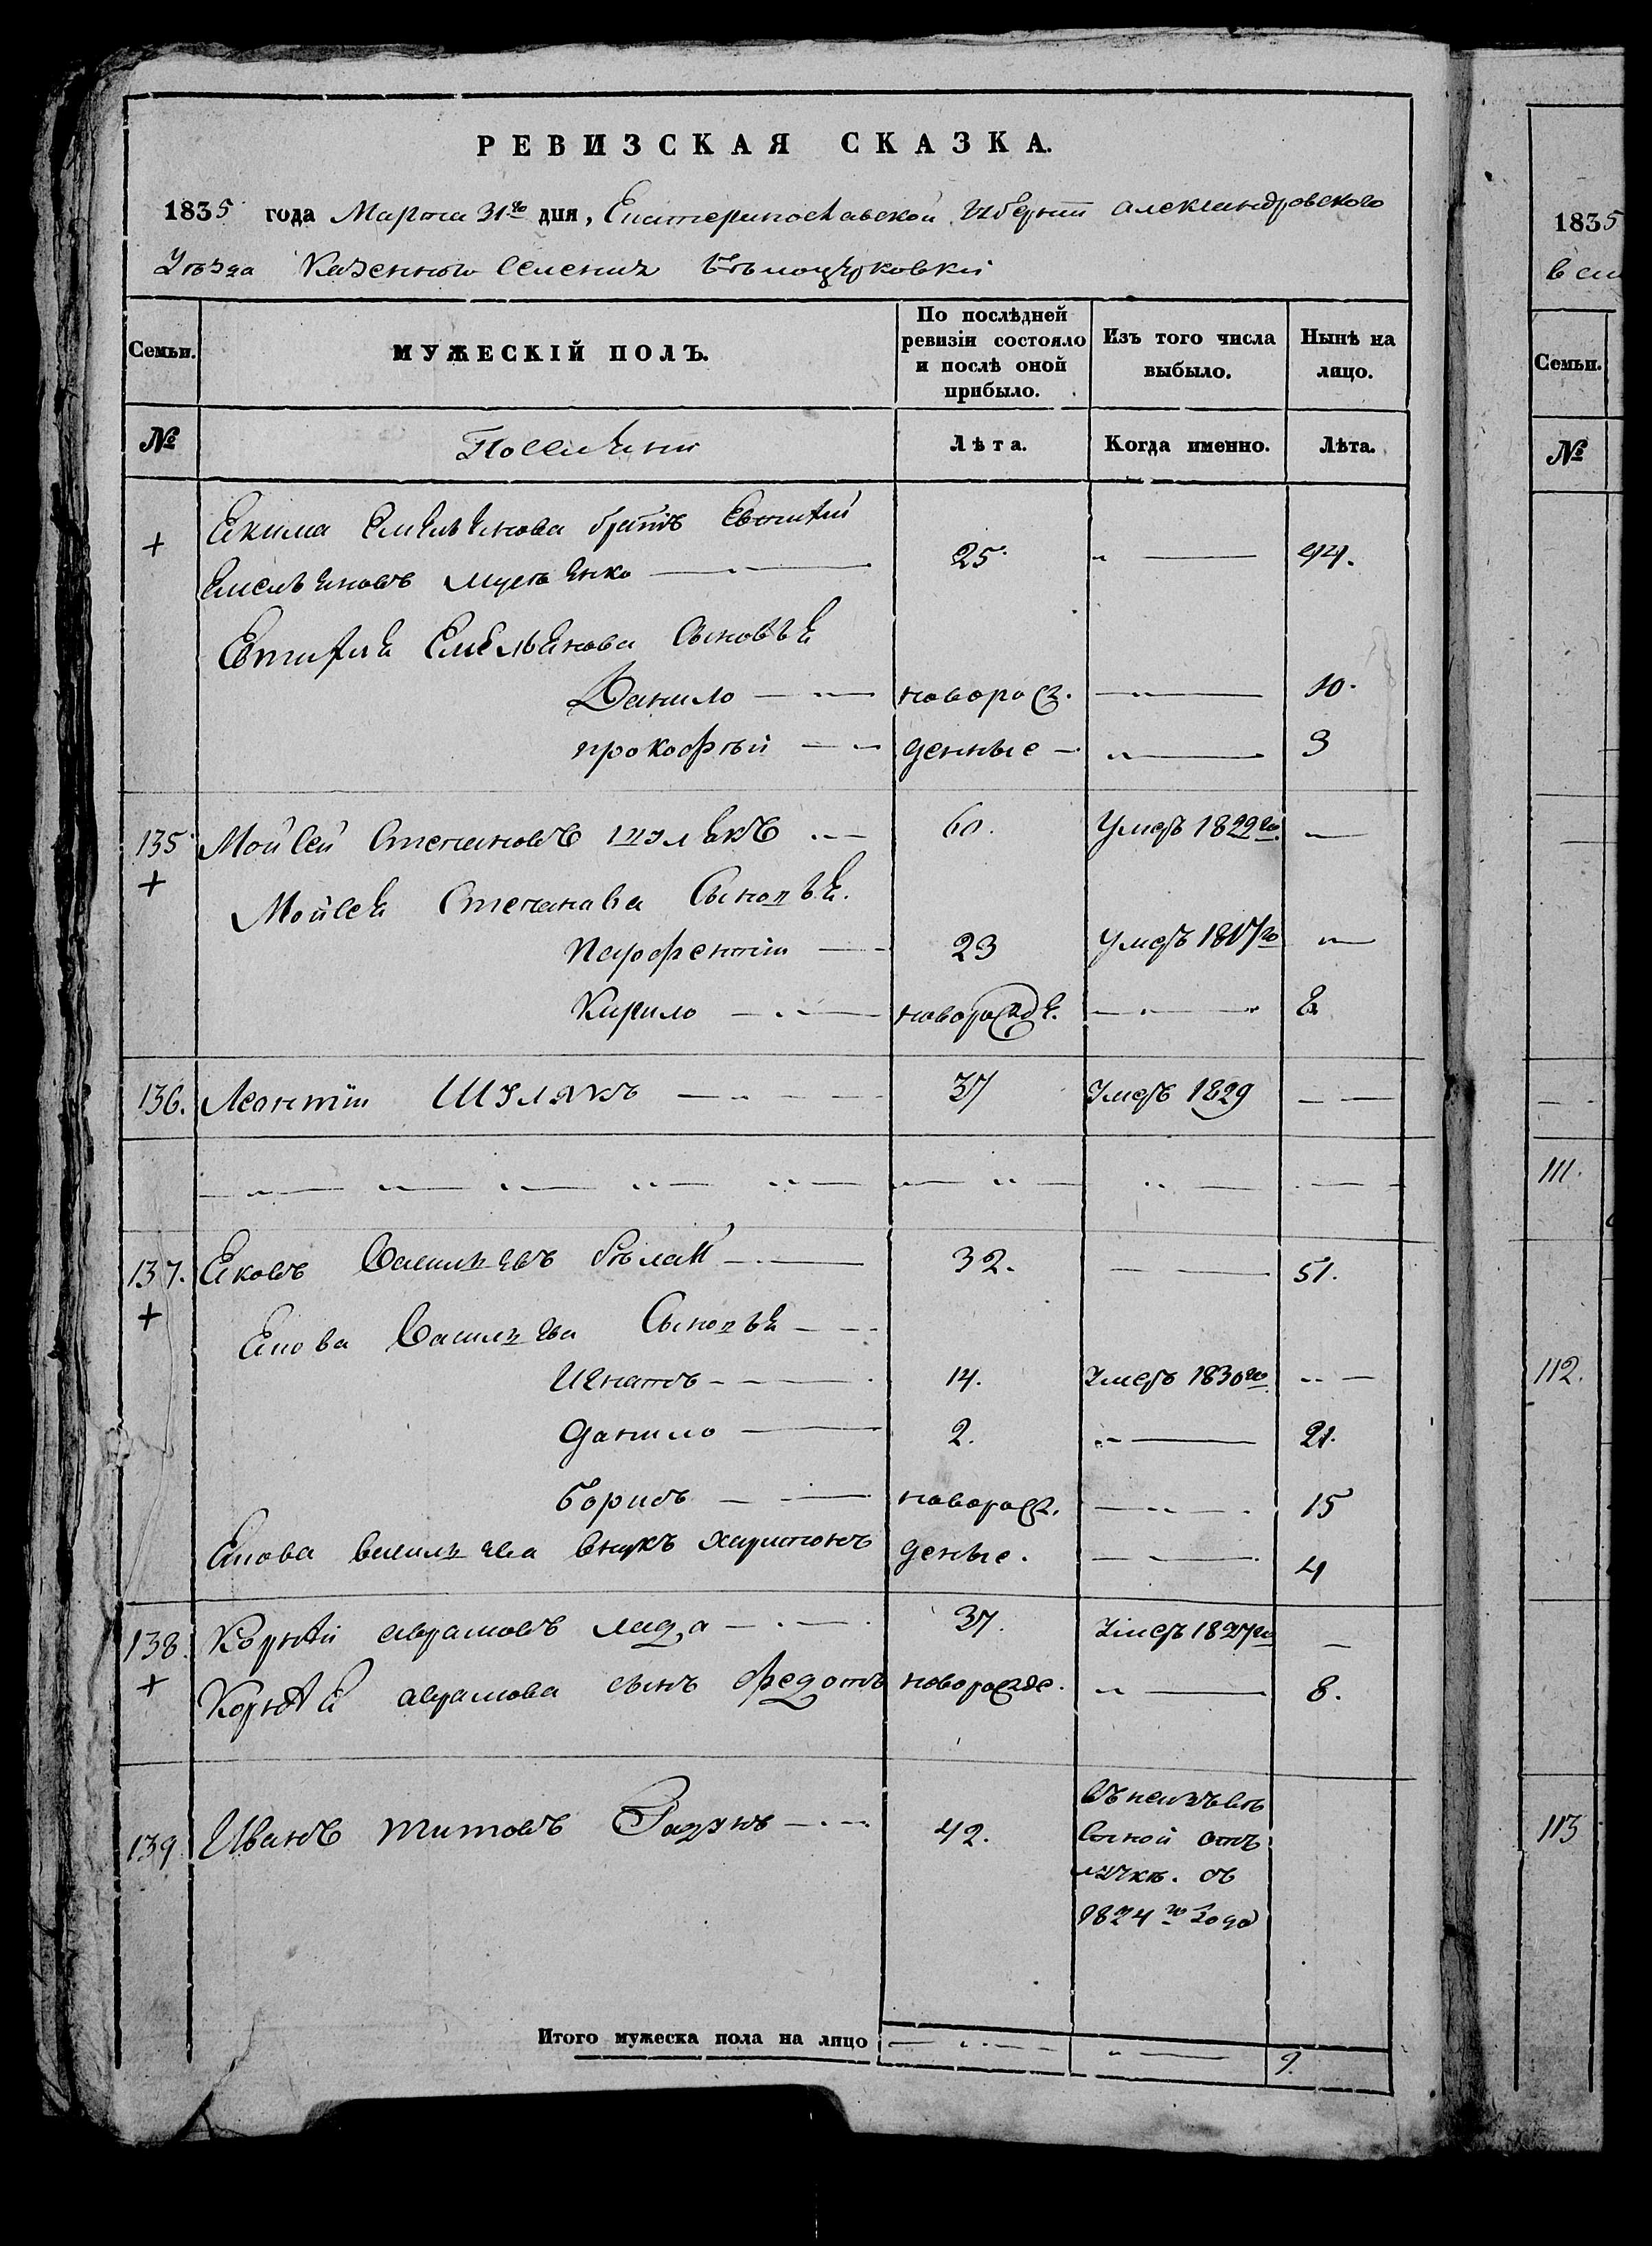 РЕВИЗСКАЯ СКАЗКА.
1835 года Марта 31го дня, Екатеринославской Губернии Александровского
Уезда Казенного Селения Белоцерковки
Семьи. МУЖЕСКІЙ ПОЛЪ. По послѣдней ревизіи состояло и послѣ оной прибыло. Изъ того числа выбыло. Нынѣ на лицо.
№ Лѣта. Когда именно. Лѣта.
+ Екима Емельянова братъ Евтифій
Емельяновъ 25 44.
Евтифія Емельянова Сыновья
Данило новорож. 10.
прокофѣй денные 3
135 Мойсей Степановъ шулякъ 60. Умеръ 1829го
+ Мойсея Степанова Сыновья.
Парфентій 23 Умеръ 1817го
Кирило новорожде. 8
136. Леонтій Шулякъ 37 Умеръ 1829
137. Яковъ Васильевъ бѣлай 32. 51.
+ Якова Васильева Сыновья
Игнатъ 14. Умеръ 1830го
Данило 2. 21.
Борисъ новорож. 15
Якова васильева внукъ харитонъ денные. 4
138. Корнѣй аврамовъ 37. Умеръ 1827го
+ Корнѣя аврамова сынъ федотъ новорожде. 8.
139 Иванъ титовъ 42. въ неизвѣ
стной отъ
лучкѣ. съ
1824го Года
Итого мужеска пола на лицо 9.
1835
Семьи.
№
111.
112.
113